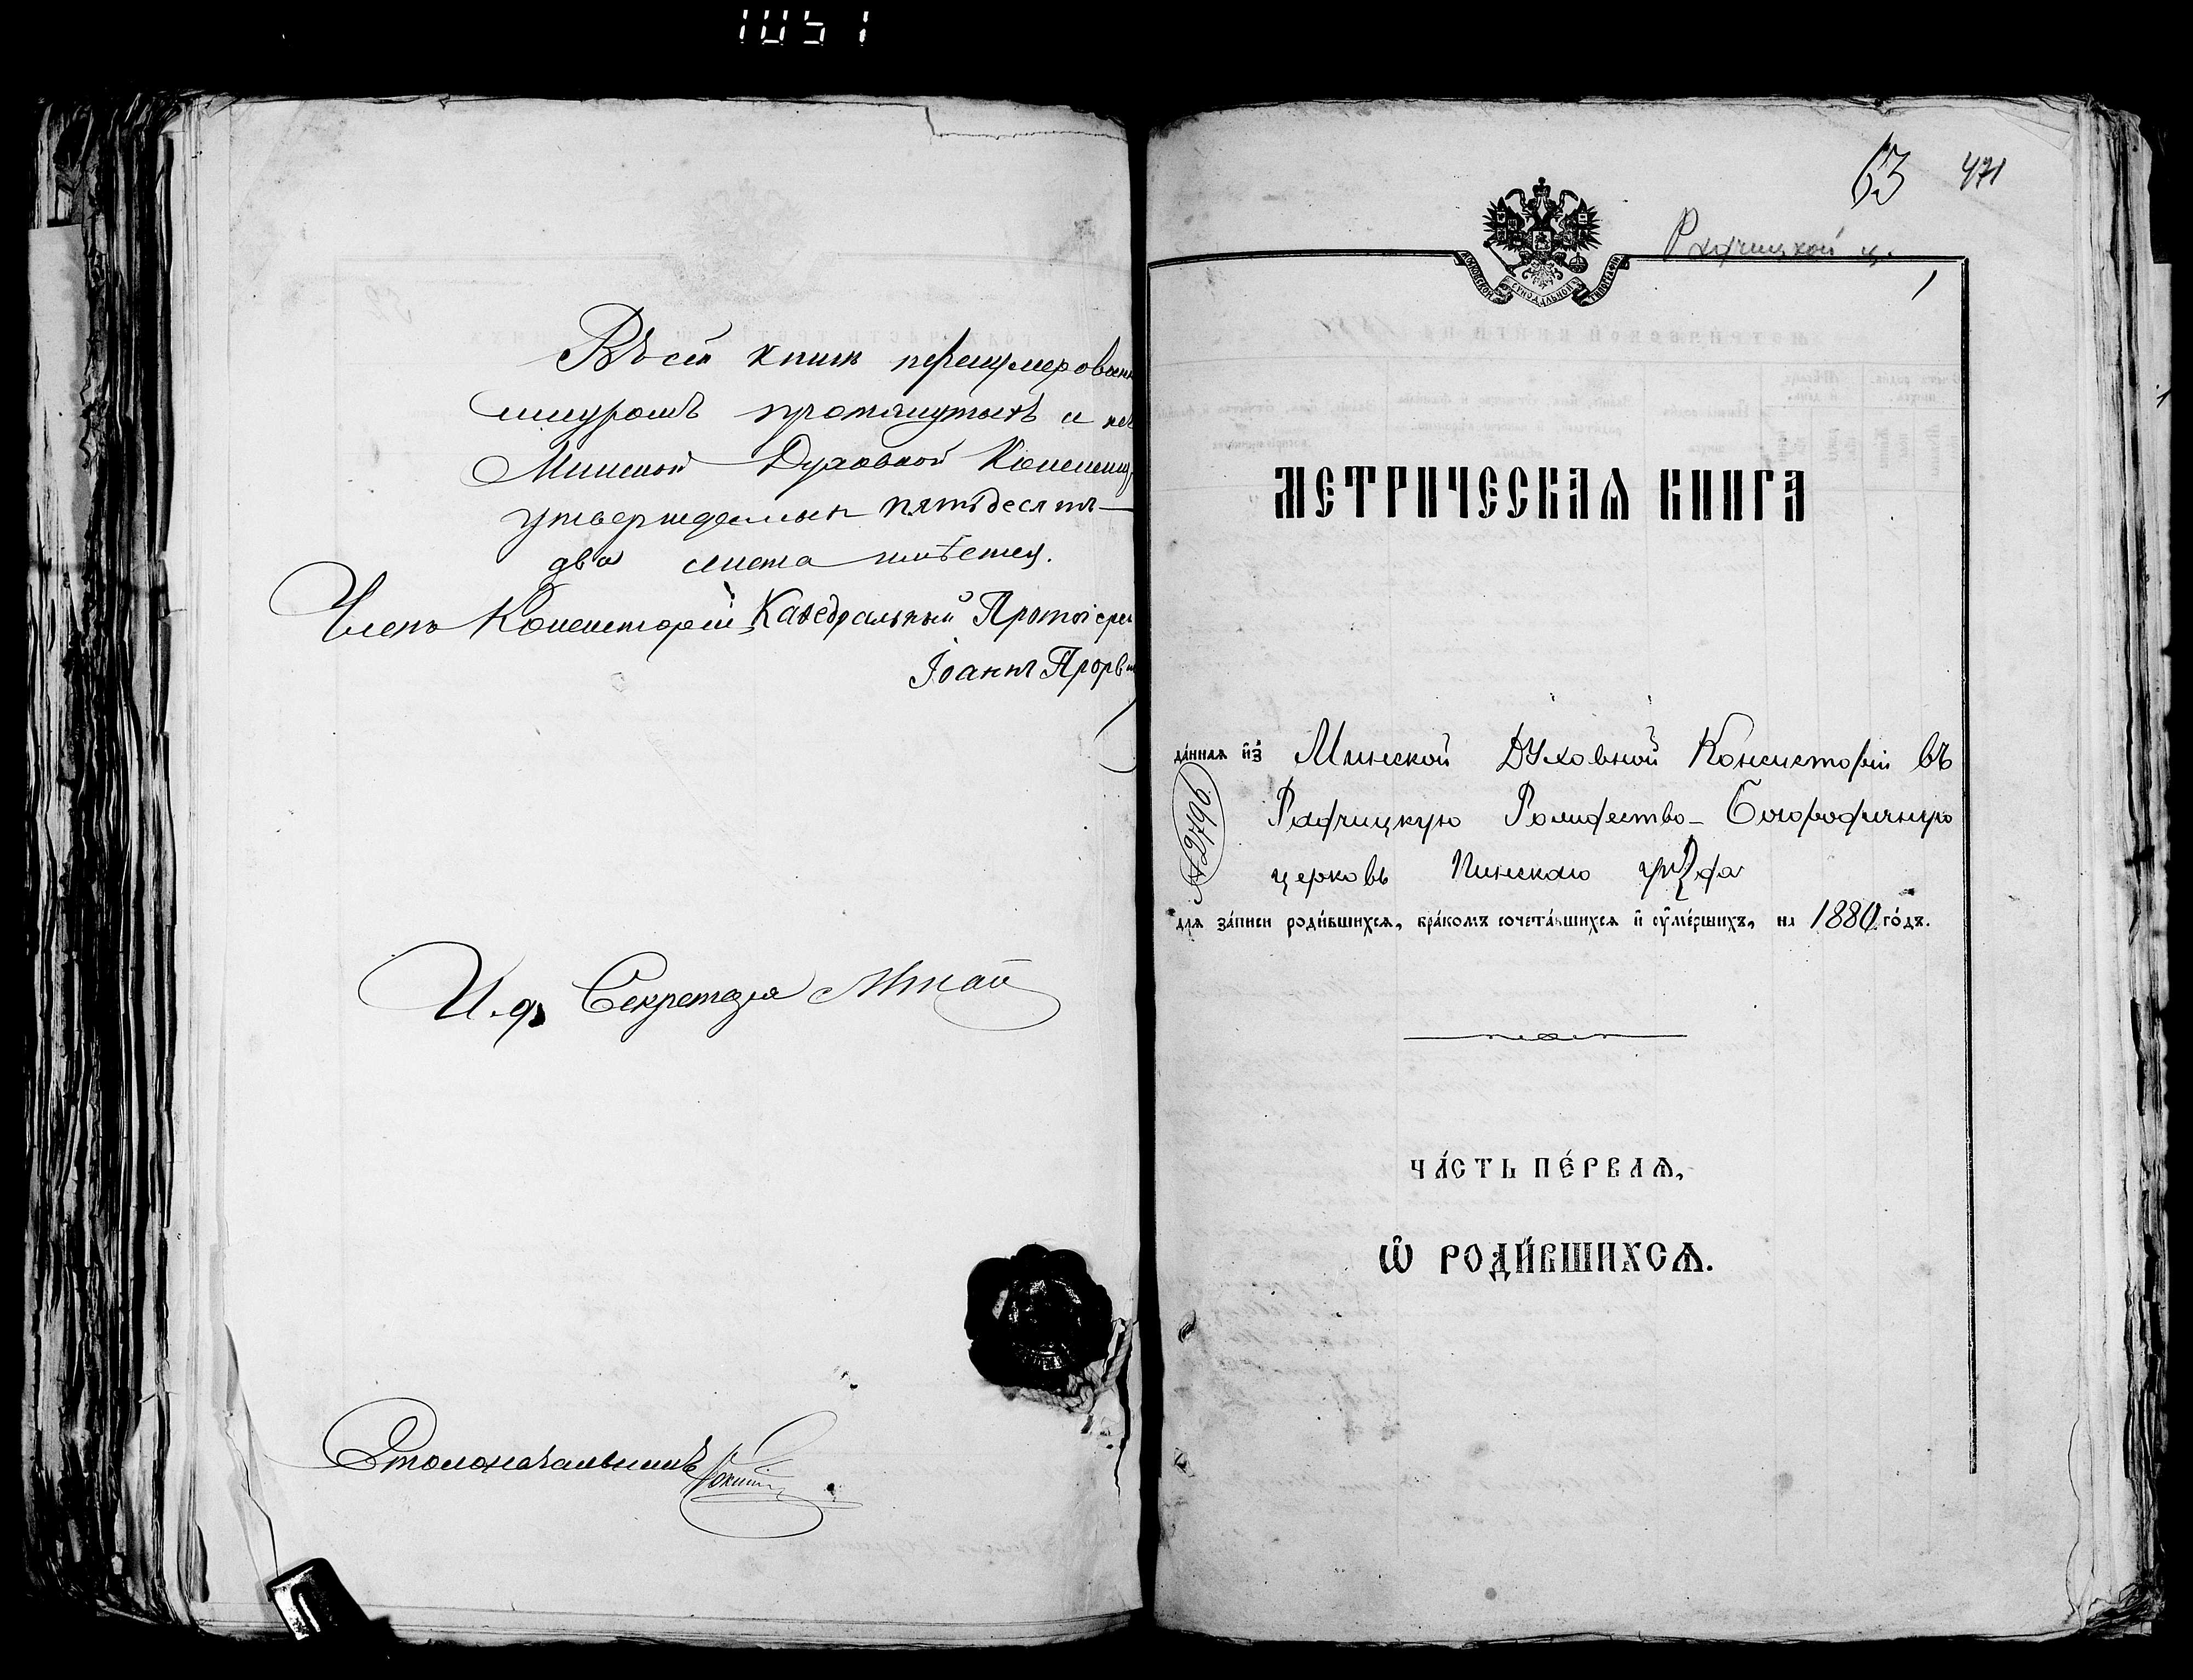 1051
Въ сей книгѣ перенумерован
шнуромъ протянутыхъ и печ
Минской Духовной Консистор
утвержденныхъ пятьдесятъ
два листа имѣется.
Членъ Консисторіи Каѳедральный Протоіерей
Іоаннъ
И. д. Секретаря
Столоначальникъ
63 471
Радчицкой ц.
МОСКОВСКОЙ СѴНОДАЛЬНОЙ ТИПОГРАФІИ
1
МЕТРИЧЕСКАѦ КНИГА
да́ннаѧ и҆з̾ Минской Духовной Консисторіи въ
Радчицкую Рождество-Богородичную
№ 2796
церковь Пинскаго уѣзда
для за́писи роди́вшихсѧ, бра́комъ сочета́вшихсѧ и҆ ᲂу҆ме́ршихъ, на 1880 го́дъ.
ЧА́СТЬ ПЕ́РВАѦ,
Ѡ҆ РОДИ́ВШИХСѦ.